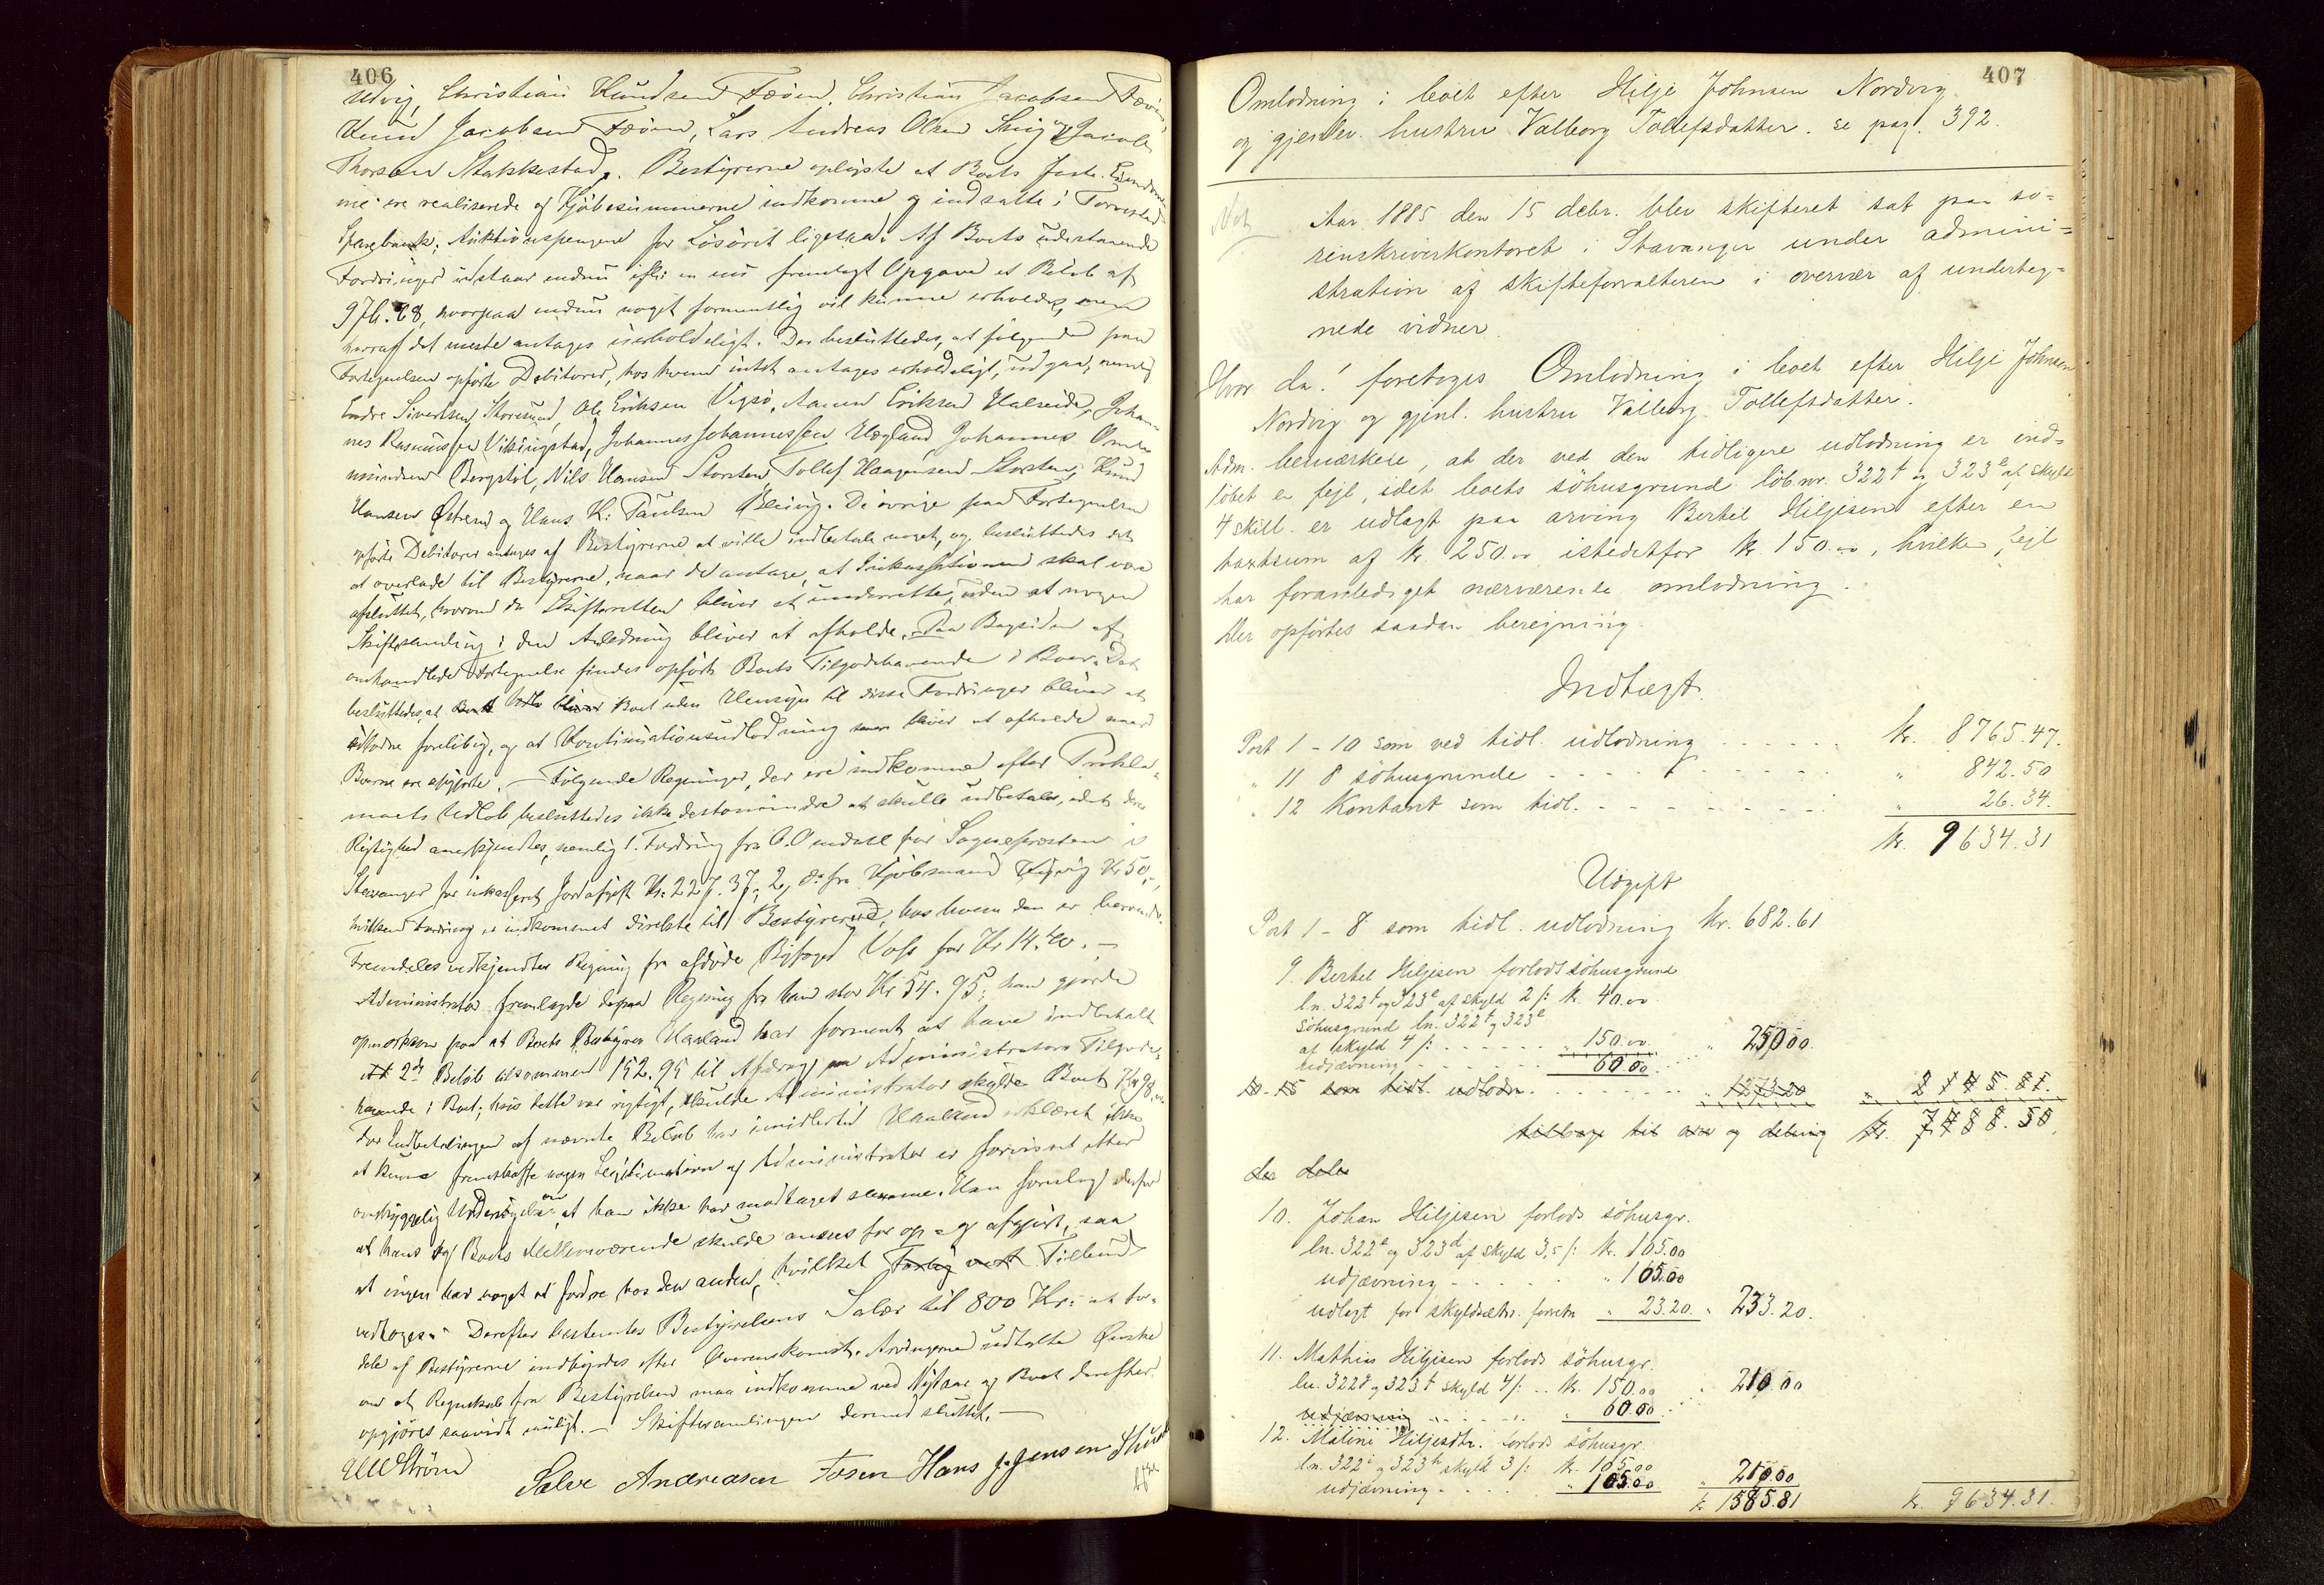 406
Udvig, Christian Knudsen Feøen, Christian Jacobsen Feøen,
Knud Jacobsen Feøen, Lars Andreas Olsen og Jacob
Thorsen Stakkestad. Bestyrerne oplyste at Boets faste Eiendom-
me ere realiserede og Kjøbesummerne indkomne og indsatte i Torvestad
Sparebank; Auktionspengene for Løsøret ligesaa. Af Boets udestaaende
Fordringer udstaar endnu ifl: en nu fremlagt Opgave et Beløb af
976.28, hvorpaa endnu noget formentlig vil kunne erholdes, men
hvoraf det meste antages uerholdeligt. Der besluttedes, at følgende paa
Fortegnelsen opførte Debitorer, hos hvem intet antages erholdeligt, udgaar, nemlig
Endre Sivertsen Storesund, Ole Eriksen Vigsø, Aanen Eriksen Halseide, Johan-
nes Rasmussen Vikingstad, Johannes Johannessen Hægland, Johannes Om-
mundsen Bergstøl, Nils Hansen Storsten, Tollef Haagensen Storsten, Knud
Hansen Østrem og Hans K. Paulsen Bleivig. De øvrige paa Fortegnelsen
opførte Debitorer antages af Bestyrerne at ville indbetale noget, og besluttedes det
at overlade til Bestyrerne, naar de antage, at Inkassationen skal være
afsluttet, hvorom da Skifteretten bliver at underrette, uden at nogen
Skiftesamling i den Anledning bliver at afholde. Paa Bagsiden af
omhandlede Fortegnelse findes opført Boets Tilgodehavende i Boer. Det
besluttedes, at Boet uden Hensyn til disse Fordringer bliver at
udlodne foreløbig, og at Kontinuationsudlodning bliver at afholde naar
Boerne ere opgjorte. – Følgende Regninger, der ere indkomne efter Prokla-
maets Udløb besluttedes ikke destomindre at skulle udbetales, idet deres
Rigtighed anerkjendtes, nemlig 1. Fordring fra O. Omdall for Sognepresten i
Stavanger for inkasseret Jordafgift Kr. 227.37, 2, do fra Kjøbmand Kr 50,-,
hvilken Fordring er indkommet direkte til Bestyrerne, hos hvem den er beroende.
Fremdeles vedkjendtes Regning fra afdøde Byfoged Voss for Kr 14.40. –
Administrator fremlagde derpaa Regning fra ham stor Kr 54.95; han gjorde
opmærksom paa at Boets Bestyrer Haaland har forment at have indbetalt
2de Beløb tilsammen 152.95 til Afdrag paa Administrators Tilgode-
havende i Boet; hvis dette var rigtigt, skulde Administrator skylde Boet Kr 98.
For Indbetalingen af nævnte Beløb har imidlertid Haaland erklæret ikke
at kunne fremskaffe nogen Legitimation og Administrator er forvisset efter
omhyggelig Undersøgelse om, at han ikke har modtaget samme. Han foreslog derfor
at hans og Boets Mellemværende skulde ansees for op- og afgjort, saa
at ingen har noget at fordre hos den anden, hvilket Tilbud
vedtoges. Derefter bestemtes Bestyrelsens Salær til 800 Kr. at for-
dele af Bestyrerne indbyrdes efter Overenskomst. Arvingerne udtalte Ønske
om at Regnskab fra Bestyrelsen maa indkomme ved Nytaar og Boet derefter
opgjøres saavidt muligt. – Skiftesamlingen dermed sluttet. –
Strøm Salve Andreasen Fosen Hans J. Jensen
407
Omlodning i boet efter Hilje Johnsen Nordvig
og gjenlev. hustru Valborg Tollefsdatter. se pag. 392.
Not
Aar 1885 den 15 debr. blev skifteret sat paa so-
renskriverkontoret i Stavanger under admini-
stration af skifteforvalteren i overvær af underteg-
nede vidner.
Hvor da! foretoges Omlodning i boet efter Hilje Johnsen
Nordvig og gjenl. hustru Valborg Tollefsdatter.
Adm. bemærkede, at der ved den tidligere udlodning er ind-
løbet en fejl, idet boets söhusgrund löb.nr. 322f og 323e af skyld
4 skill er udlagt paa arving Bertel Hiljesen efter en
taxtsum af kr. 250.00 istedetfor kr. 150.00, hvilken fejl
har foranlediget nærværende omlodning.
Der opførtes saadan beregning:
Indtægt.
Post 1 – 10 som ved tidl. udlodning . . . . . . kr. 8765.47.
" 11 8 söhusgrunde - - - - - - - - " 842.50
" 12 Kontant som tidl. - - - - - - - - " 26.34.
kr. 9634.31
Udgift
Post 1 – 8 som tidl. udlodning kr. 682.61
9. Bertel Hiljesen forlods söhusgrund
ln. 322d og 323e af skyld 2 /: kr. 40.00
söhusgrund ln. 322f og 323e
af skyld 4 /: - - - - - " 150.00 " 250.00
udjævning - - - - - - 60.00
10 - 15 som tidl. udlodn. - - - - - - " 1273.20 " 2145.81.
tilbage til arv og deling kr. 7488.50
der deles
10. Johan Hiljesen forlods söhusgr.
ln. 322e og 323d af skyld 3,5 /: kr. 105.00
udjævning - - - - - " 105.00
udlagt for skyldsætn. forretn " 23.20 " 233.20.
11. Mathias Hiljesen forlods söhusgr.
ln. 322g og 323f skyld 4 /: .. kr. 150.00 " 210.00
udjævning - - - - - " 60.00
12. Maline Hiljesdtr. forlods söhusgr.
ln. 322i og 323h skyld 3 /: kr. 105.00
udjævning - - - - " 105.00 " 210.00
kr 1585.81 kr. 9634.31.